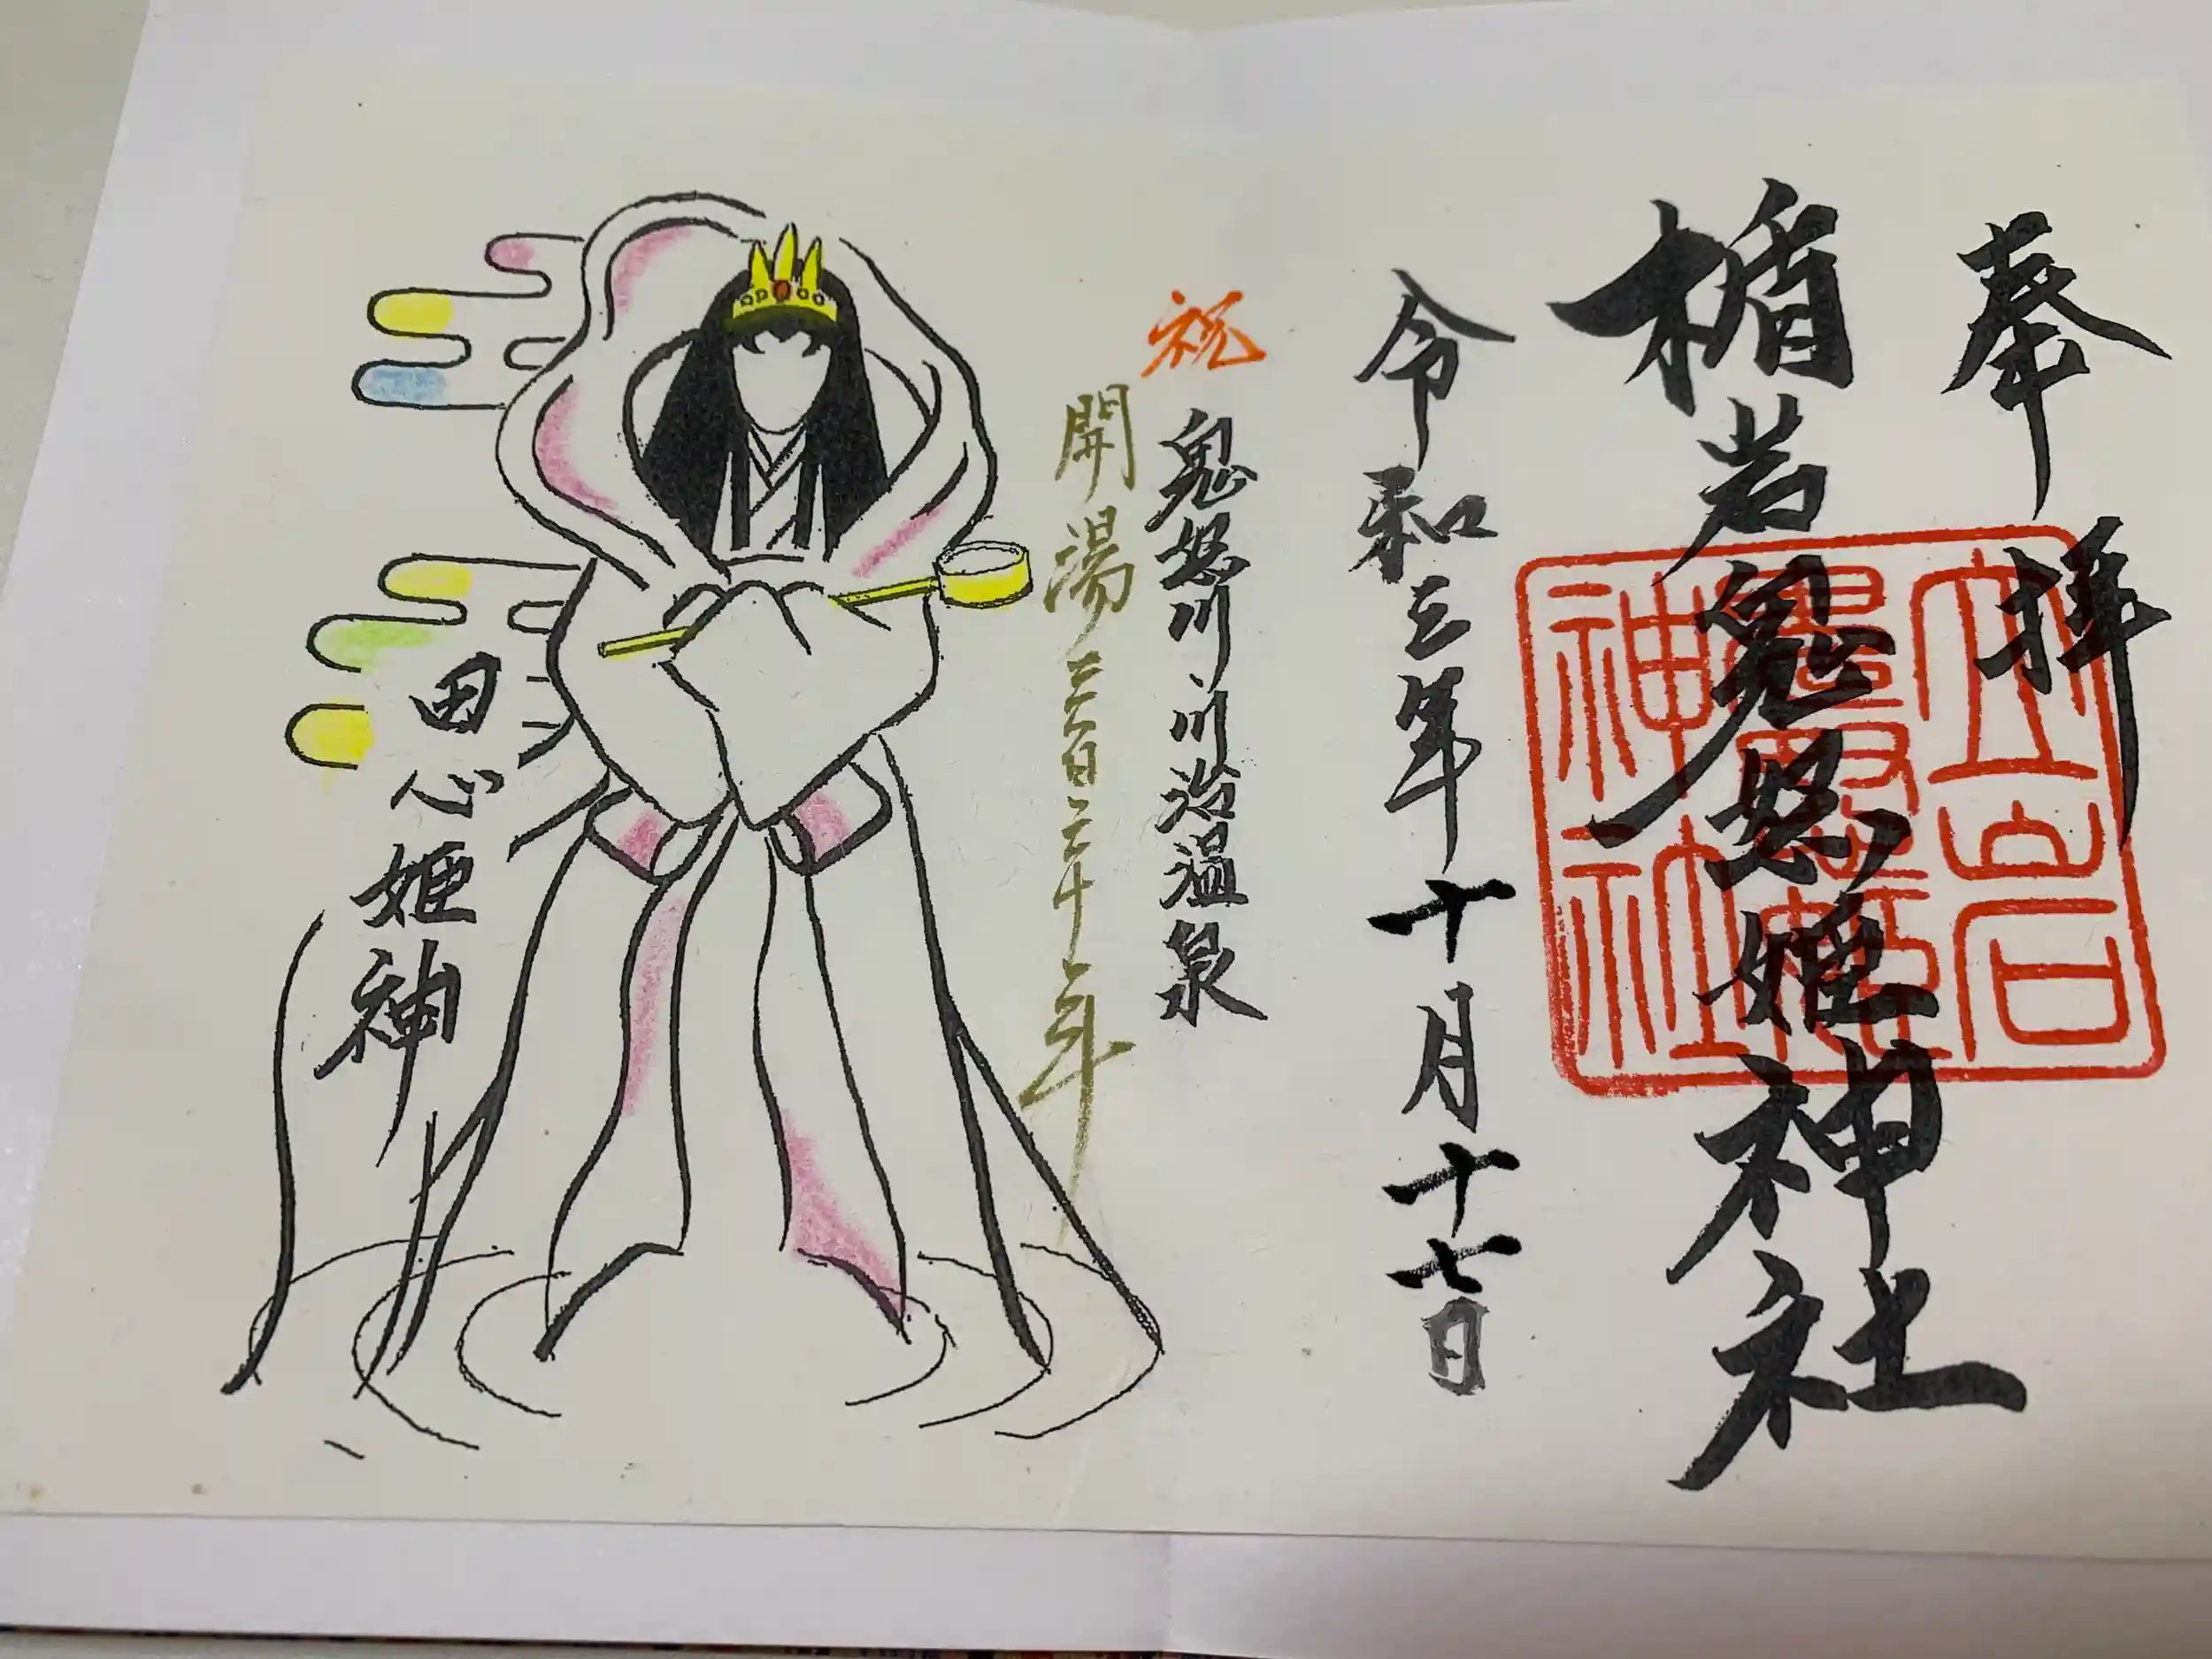 奉拝
楯岩鬼怒姫神社
立岩
鬼怒姫
神社
令和三年十月十七日
祝 鬼怒川川治温泉
開湯三百三十年
田心姫神